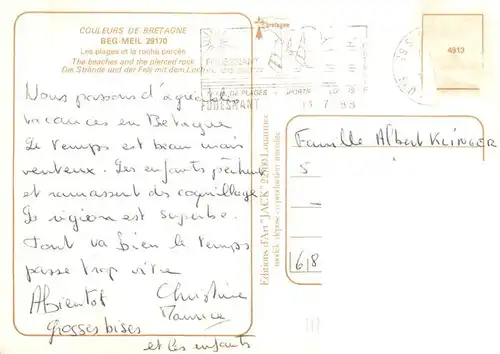 COULEURS DE BRETAGNE
BEG-MEIL 29170
Les plages et la roche percée
The beaches and the pierced rock
Die Strände und der Fels mit dem Loch
bretagne
FOUESNANT
DE PLAGES SPORTS
FOUESNANT
4913
Nous passons d'agréables
vacances en Bretagne
Le temps est beau mais
venteux. Les enfants pêchent
et ramassent des coquillages
La région est superbe.
Tout va bien le temps
passe trop vite
Abientot Christine
Maurice
grosses bises
et les enfants
Editions d'Art "JACK" 22000 Louannec
modèle déposé - reproduction interdite
Famille Albert KLINGER
5
618